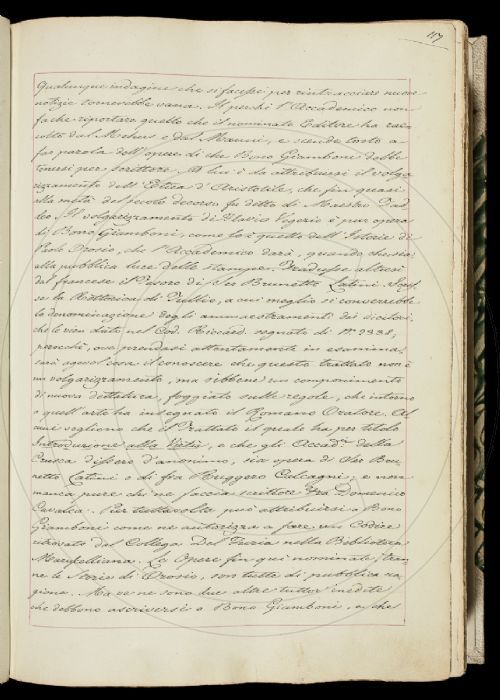 117
Qualunque indagine che si facesse per rintracciare nuove
notizie tornerebbe vana. Il perchè l'Accademico non
fa che riportare quello che il nominato Editore ha rac
colto dal Mehus e dal Manni, e scende tosto a
far parola dell'opere di che Bono Giamboni debbe
tenersi per scrittore. A lui è da attribuirsi il volga
rizzamento dell'Etica d'Aristotile, che fin quasi
alla metà del secolo decorso fu detto di Maestro Tad
deo. Il volgarizzamento di Flavio Vegezio è pur opera
di Bono Giamboni, come lo è quello dell'Istorie di
Paolo Orosio, che l'Accademico darà, quando che sia
alla pubblica luce delle stampe. Tradusse altresì
dal francese il Tesoro di Ser Brunetto Latini.
se la Rettorica di Tullio, a cui meglio si converrebbe
la denominazione degli ammaestramenti dei dicitori,
che le vien data nel Cod. Riccard. segnato di N.º 2338,
perocchè, ove prendasi attentamente in esamina,
sarà agevol cosa il conoscere che questo trattato non è
un volgarizzamento, ma sibbene un componimento
di nuova dettatura, foggiato sulle regole, che intorno
a quell'arte ha insegnato il Romano Oratore. Al
cuni vogliono che il Trattato il quale ha per titolo
Introduzione alla Virtù, e che gli Accad.ci della
Crusca dissero d'anonimo, sia opera di Ser Bru
netto Latini o di fra Ruggero Calcagni; e non
manca pure chi ne faccia scrittore Fra Domenico
Cavalca. Pur tuttavolta può attribuirsi a Bono
Giamboni come ne autorizza a fare un Codice
ritrovato dal Collega Del Furia nella Biblioteca
Marucelliana. Le Opere fin qui nominate, tran
ne le Storie di Orosio, son tutte di pubblica ra
gione. Ma ve ne sono due altre tuttor inedite
che debbono ascriversi a Bono Giamboni, e che